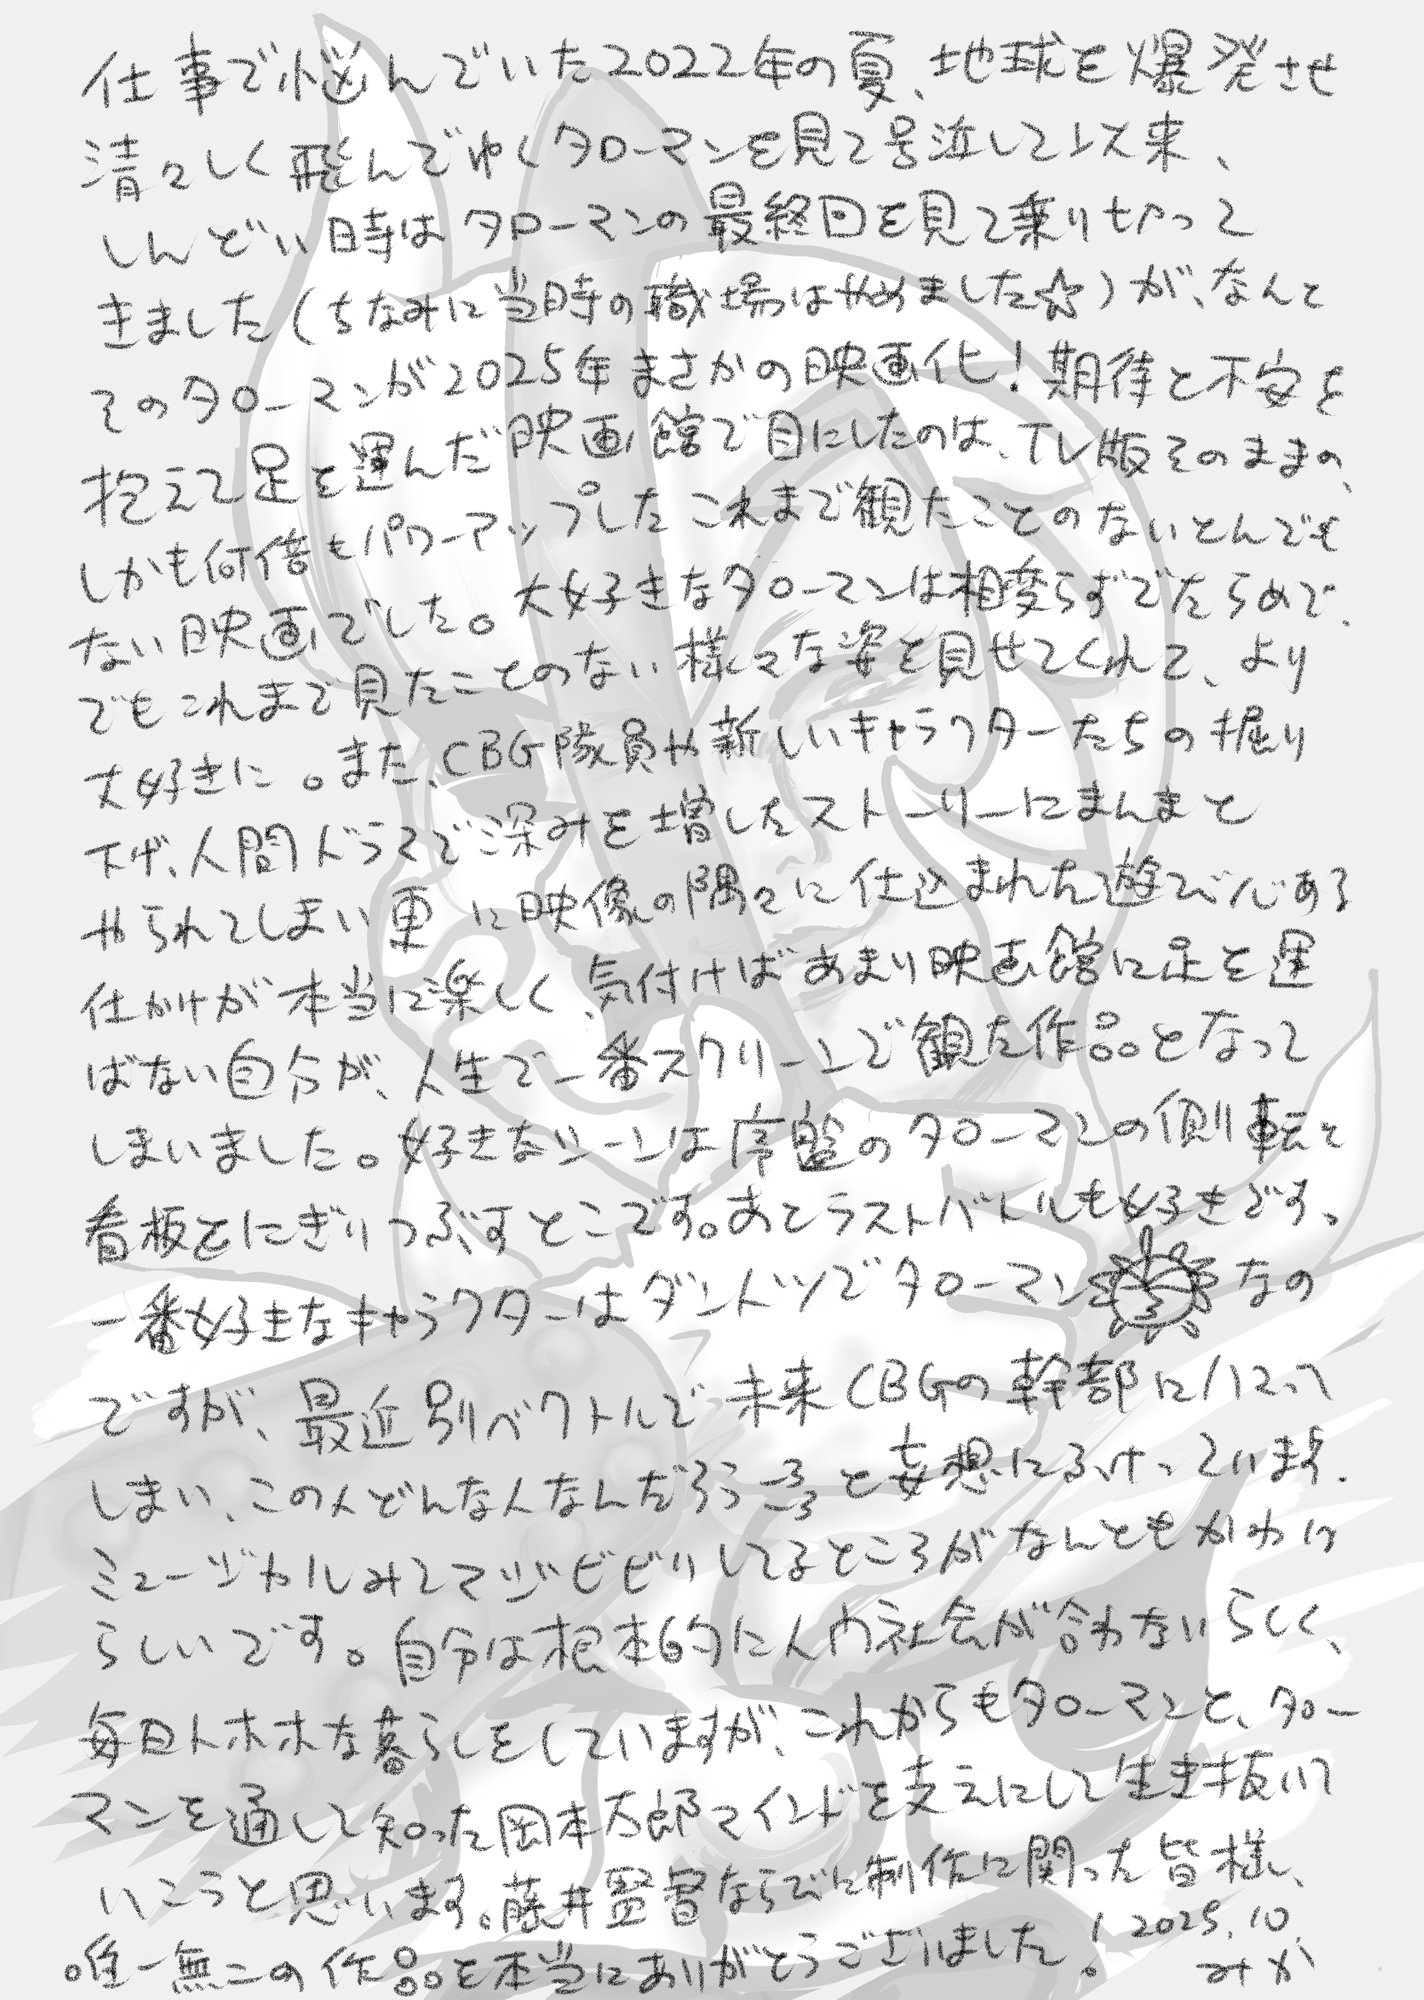 仕事で悩んでいた2022年の夏、地球を爆発させ
清々しく飛んでゆくタローマンを見て号泣して以来、
しんどい時はタローマンの最終回を見て乗り切って
きました(ちなみに当時の職場はやめました☆)が、なんと
そのタローマンが2025年まさかの映画化!期待と不安を
抱えて足を運んだ映画館で目にしたのは、TV版そのままの、
しかも何倍もパワーアップしたこれまで観たことのないとんでも
ない映画でした。大好きなタローマンは相変らずでたらめで、
でもこれまで見たことのない様々な姿を見せてくれて、より
大好きに。また、CBG隊員や新しいキャラクターたちの掘り
下げ、人間ドラマで深みを増したストーリーにまんまと
やられてしまい更に映像の隅々に仕込まれた遊び心ある
仕かけが本当に楽しく、気付けばあまり映画館に足を運
ばない自分が、人生で一番スクリーンで観た作品となって
しまいました。好きなシーンは序盤のタローマンの側転と
看板をにぎりつぶすとこです。あとラストバトルも好きです。
一番好きなキャラクターはダントツでタローマンなの
ですが、最近別ベクトルで未来CBGの幹部にハマって
しまい、この人どんな人なんだろう…と妄想にふけっています。
ミュージカルみてマジビビリしてるところがなんともかわい
らしいです。自分は根本的に人内社会が合わないらしく、
毎日トホホな暮らしをしていますが、これからもタローマンと、タロー
マンを通して知った岡本太郎マインドを支えにして生き抜いて
いこうと思います。藤井監督ならびに制作に関った皆様、
唯一無二の作品を本当にありがとうございました! 2025.10.
みか